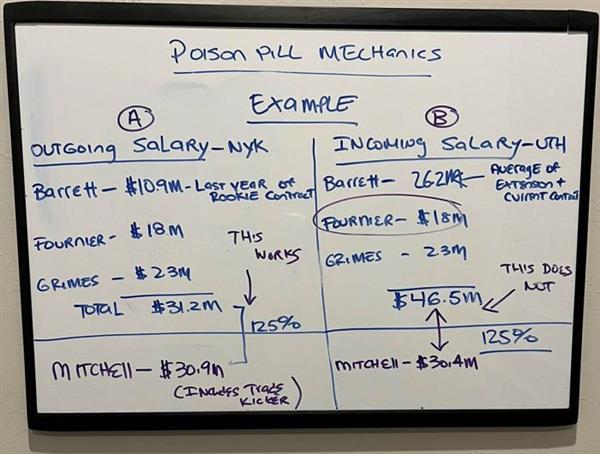 POISON PILL MECHANICS
EXAMPLE
A
OUTGOING SALARY-NYK
BARRETT- $10.9M-LAST YEAR OF
ROOKIE CONTRACT
FOURNIER- $18M
GRIMES - $2.3M
TOTAL $31.2M
THIS
WORKS
125%
MITCHELL- $30.9M
(INCLUDES TRADE
KICKER)
B
INCOMING SALARY-UTH
BARRETT- 26.2M
AVERAGE OF
EXTENSION +
CURRENT CONTRACT
FOURNIER- $18M
GRIMES - 2.3M
$46.5M
THIS DOES
NOT
125%
MITCHELL- $30.4M